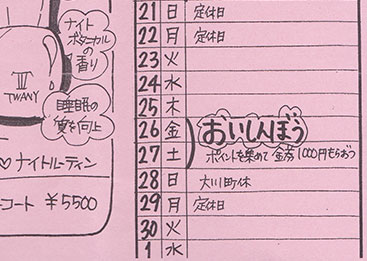 ナイト
ボタニカル
の
香り
Ⅲ
TWANY
睡眠の
質を向上
♡ナイトルーティン
コート ¥5500
21 日 定休日
22 月 定休日
23 火
24 水
25 木
26 金 おいしんぼう
27 土 ポイントを集めて 金券1000円もらおう
28 日 大川町休
29 月 定休日
30 火
1 水